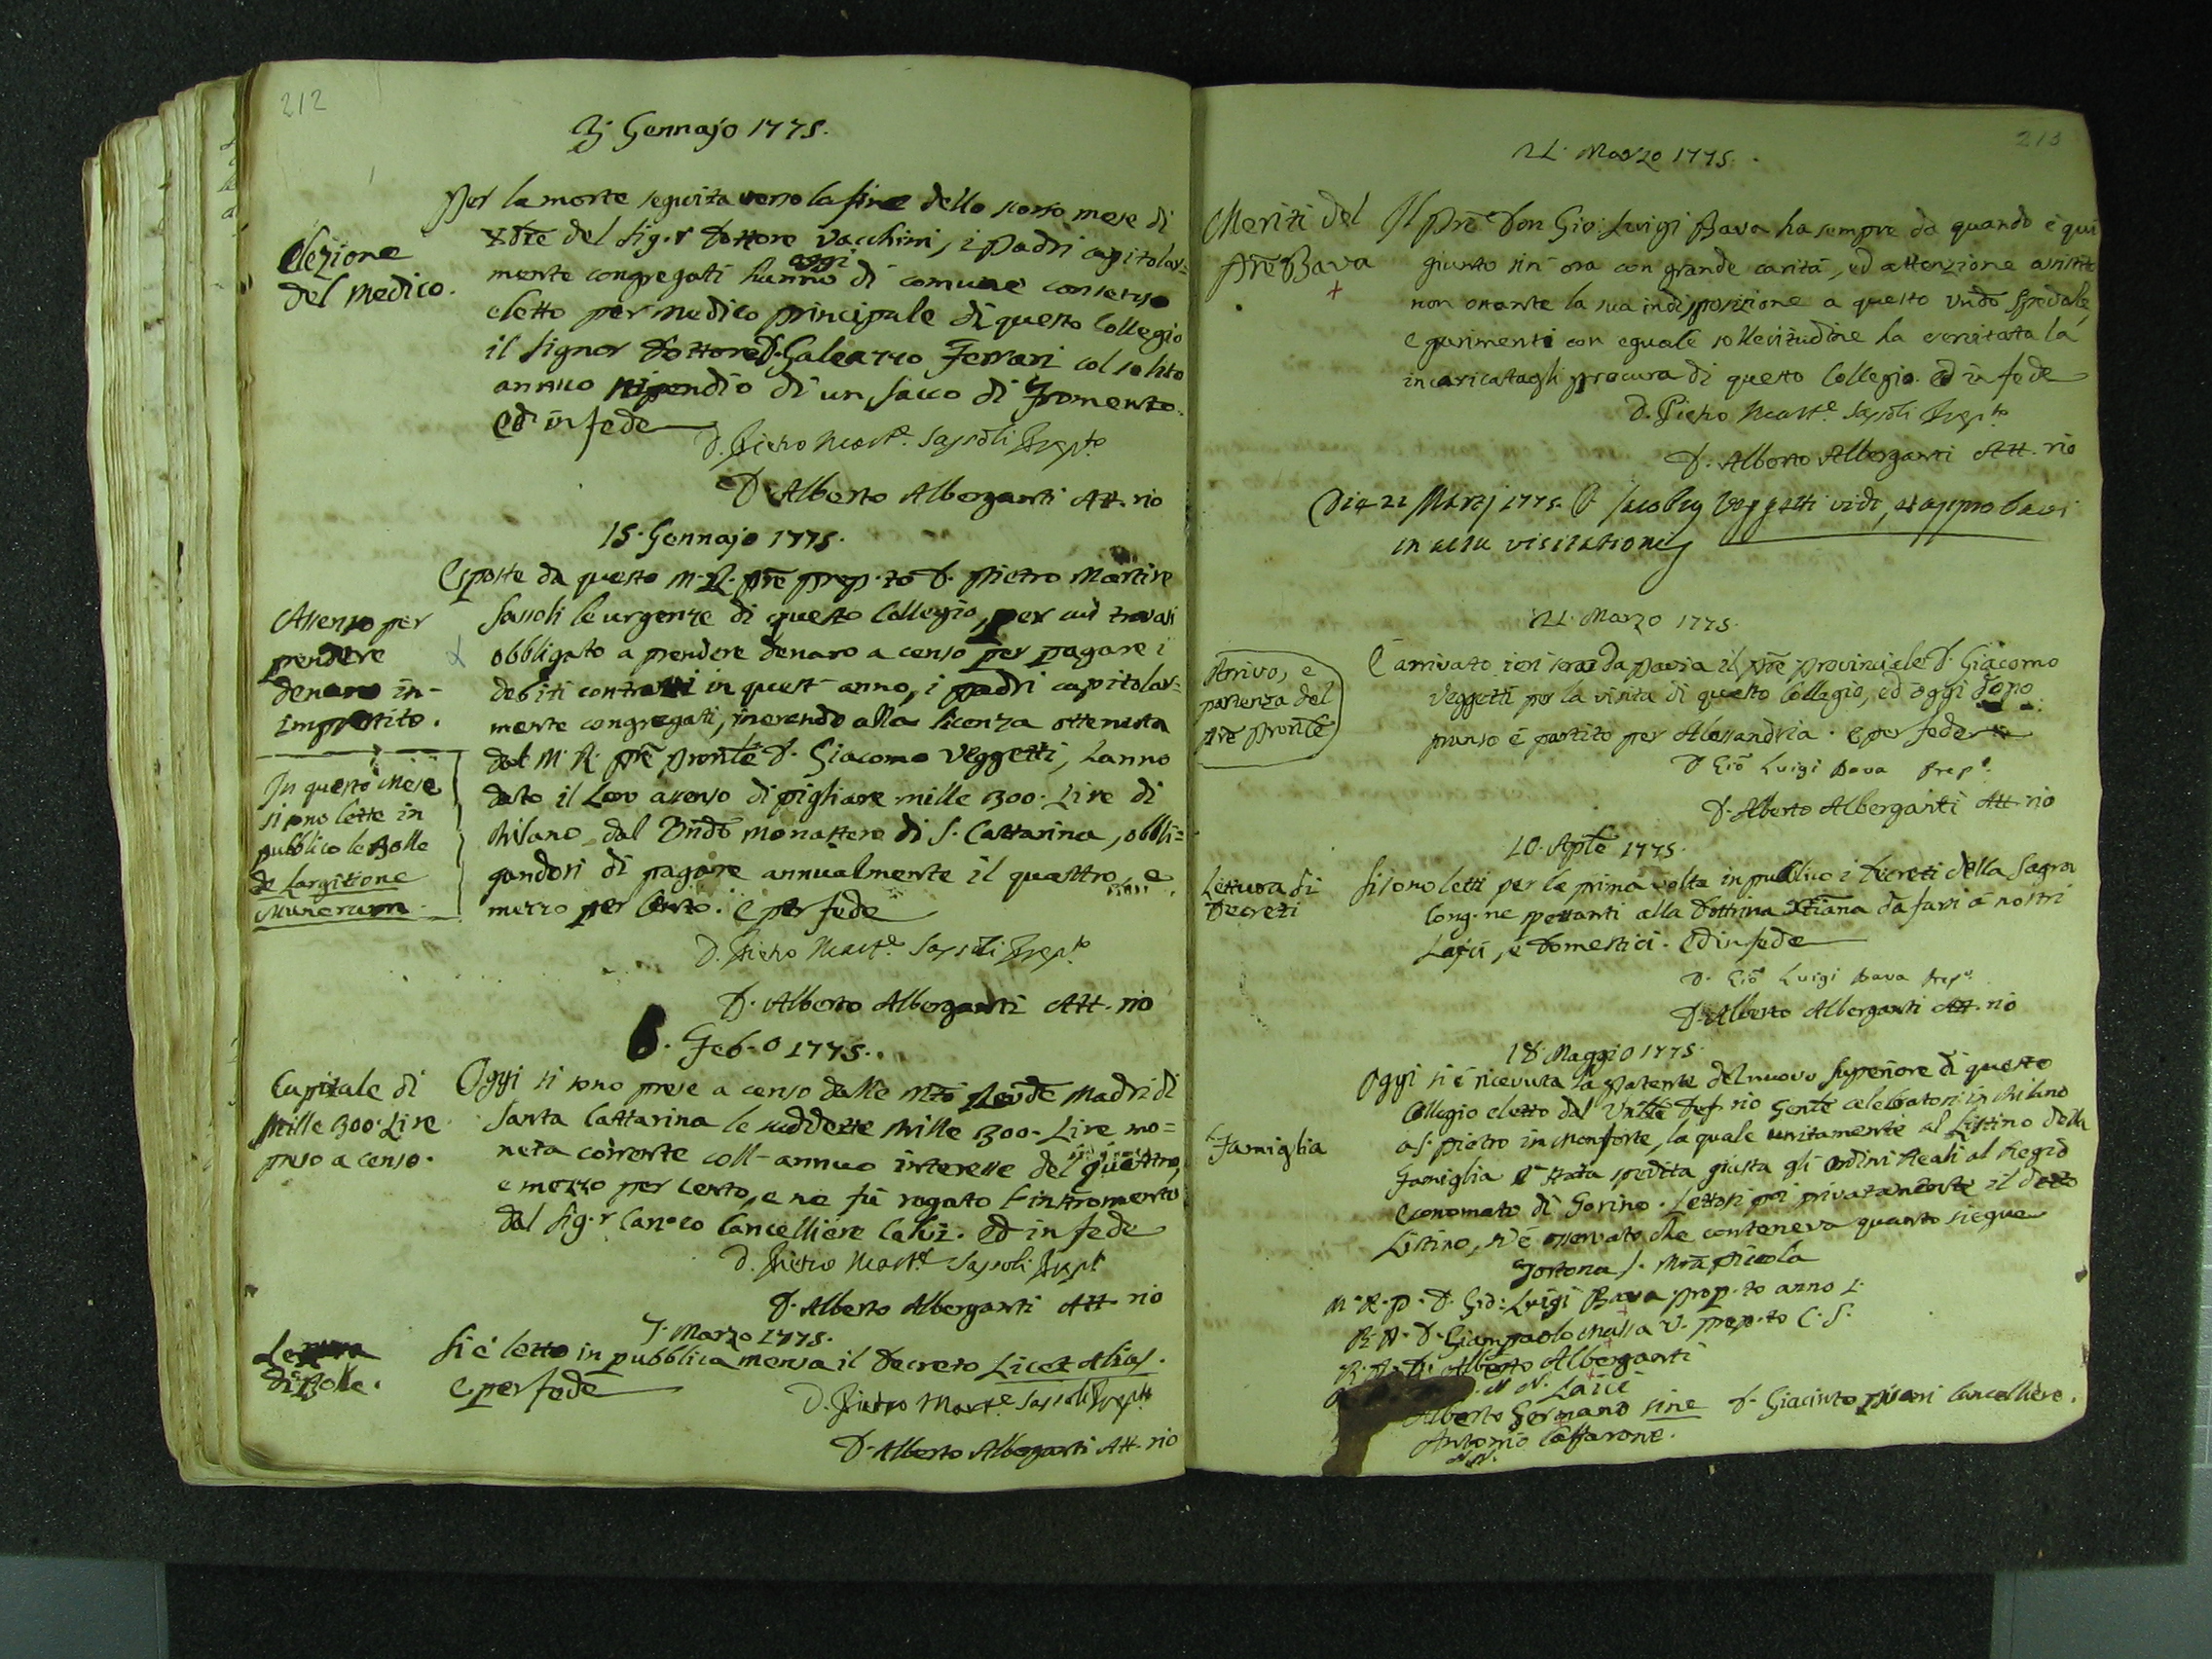 212
3 Gennajo 1775.
Elezione
del Medico.
Per la morte seguita verso la fine dello scorso mese di
Xbre del Sig.r Dottore Vacchini, i Padri capitolar=
mente congregati hanno oggi di comune consenso
eletto per Medico principale di questo Collegio
il Signor Dottore D. Galeazzo Ferrari col solito
annuo stipendio di un sacco di Fromento.
Ed in fede
D. Pietro Mart.e Sassoli Prep.to
D. Alberto Alberganti Att.rio
15. Gennajo 1775.
Assenso per
prendere
denaro in-
imprestito.
Esposte da questo M. R. Pre Prep.to D. Pietro Martire
Sassoli le urgenze di questo Collegio, per cui trovasi
obbligato a prendere denaro a censo per pagare i
debiti contratti in quest'anno, i Padri capitolar=
mente congregati, inerendo alla licenza ottenuta
dal M. R. Pre Pronle D. Giacomo Veggetti, hanno
dato il loro assenso di pigliare mille 300. Lire di
Milano dal Vndo Monastero di S. Cattarina, obbli=
gandosi di pagare annualmente il quattro, e
mezzo per cento. E per fede
In questo mese
si sono lette in
pubblico le Bolle
de Largitione
Munerum.
D. Pietro Mart.e Sassoli Prep.to
D. Alberto Alberganti Att.rio
6. Feb.o 1775.
Capitale di
Mille 300. Lire
preso a censo.
Oggi si sono prese a censo dalle Mto Rev.de Madri di
Santa Cattarina le suddette Mille 300. Lire mo=
neta corrente coll'annuo interesse del quattro,
e mezzo per cento, e ne fù rogato l'instromento
dal Sig.r Can.co Cancelliere Calvi. Ed in fede
D. Pietro Mart.e Sassoli Prep.to
D. Alberto Alberganti Att.rio
7. Marzo 1775.
Lettura
di Bolle.
Si è letto in pubblica mensa il Decreto Licet Alias.
E per fede
D. Pietro Mart.e Sassoli Prep.to
D. Alberto Alberganti Att.rio
213
21. Marzo 1775.
Meriti del
Pre Bava
Il Pre Don Gio: Luigi Bava ha sempre da quando è qui
giunto sin' ora con grande carità, ed attenzione assistito
non ostante la sua indisposizione a questo Vndo Spedale,
e parimenti con eguale sollecitudine ha esercitata la
incaricatagli procura di questo Collegio. Ed in fede
D. Pietro Mart.e Sassoli Prep.to
D. Alberto Alberganti Att.rio
Die 21 Martij 1775. D. Jacobus Veggetti vidi, et approbavi
in actu visitationis
21. Marzo 1775.
Arrivo, e
partenza del
Pre Pronle
È arrivato ieri sera da Pavia il Pre Provinciale D. Giacomo
Veggetti per la visita di questo Collegio, ed oggi dopo
pranso è partito per Alessandria. E per fede
D. Gio Luigi Bava Prep.o
D. Alberto Alberganti Att.rio
10. Aple 1775.
Lettura di
Decreti
Si sono letti per la prima volta in pubblico i Decreti della Sagra
Cong.ne spettanti alla Dottrina Xtiana da farsi a nostri
Laici, e Domestici. Ed in fede
D. Gio Luigi Bava Prep.o
D. Alberto Alberganti Att.rio
18. Maggio 1775.
Famiglia
Oggi si è ricevuta la patente del nuovo Superiore di questo
Collegio eletto dal Vnble Def.rio Genle celebratosi in Milano
a S. Pietro in Monforte, la quale unitamente al Listino della
Famiglia è stata spedita giusta gli Ordini Reali al Regio
Economato di Torino. Lettosi poi privatamente il detto
Listino, si è osservato che conteneva quanto siegue
Tortona S. Mra Piccola
M. R. P. D. Gio: Luigi Bava Prep.to anno 1.
R. P. D. Giampaolo Massa V. Prep.to C. S.
R. P. D. Alberto Alberganti
N N. Laici
Alberto Germano sine D. Giacinto Pisani Cancelliere.
Antonio Caffarone.
N N.